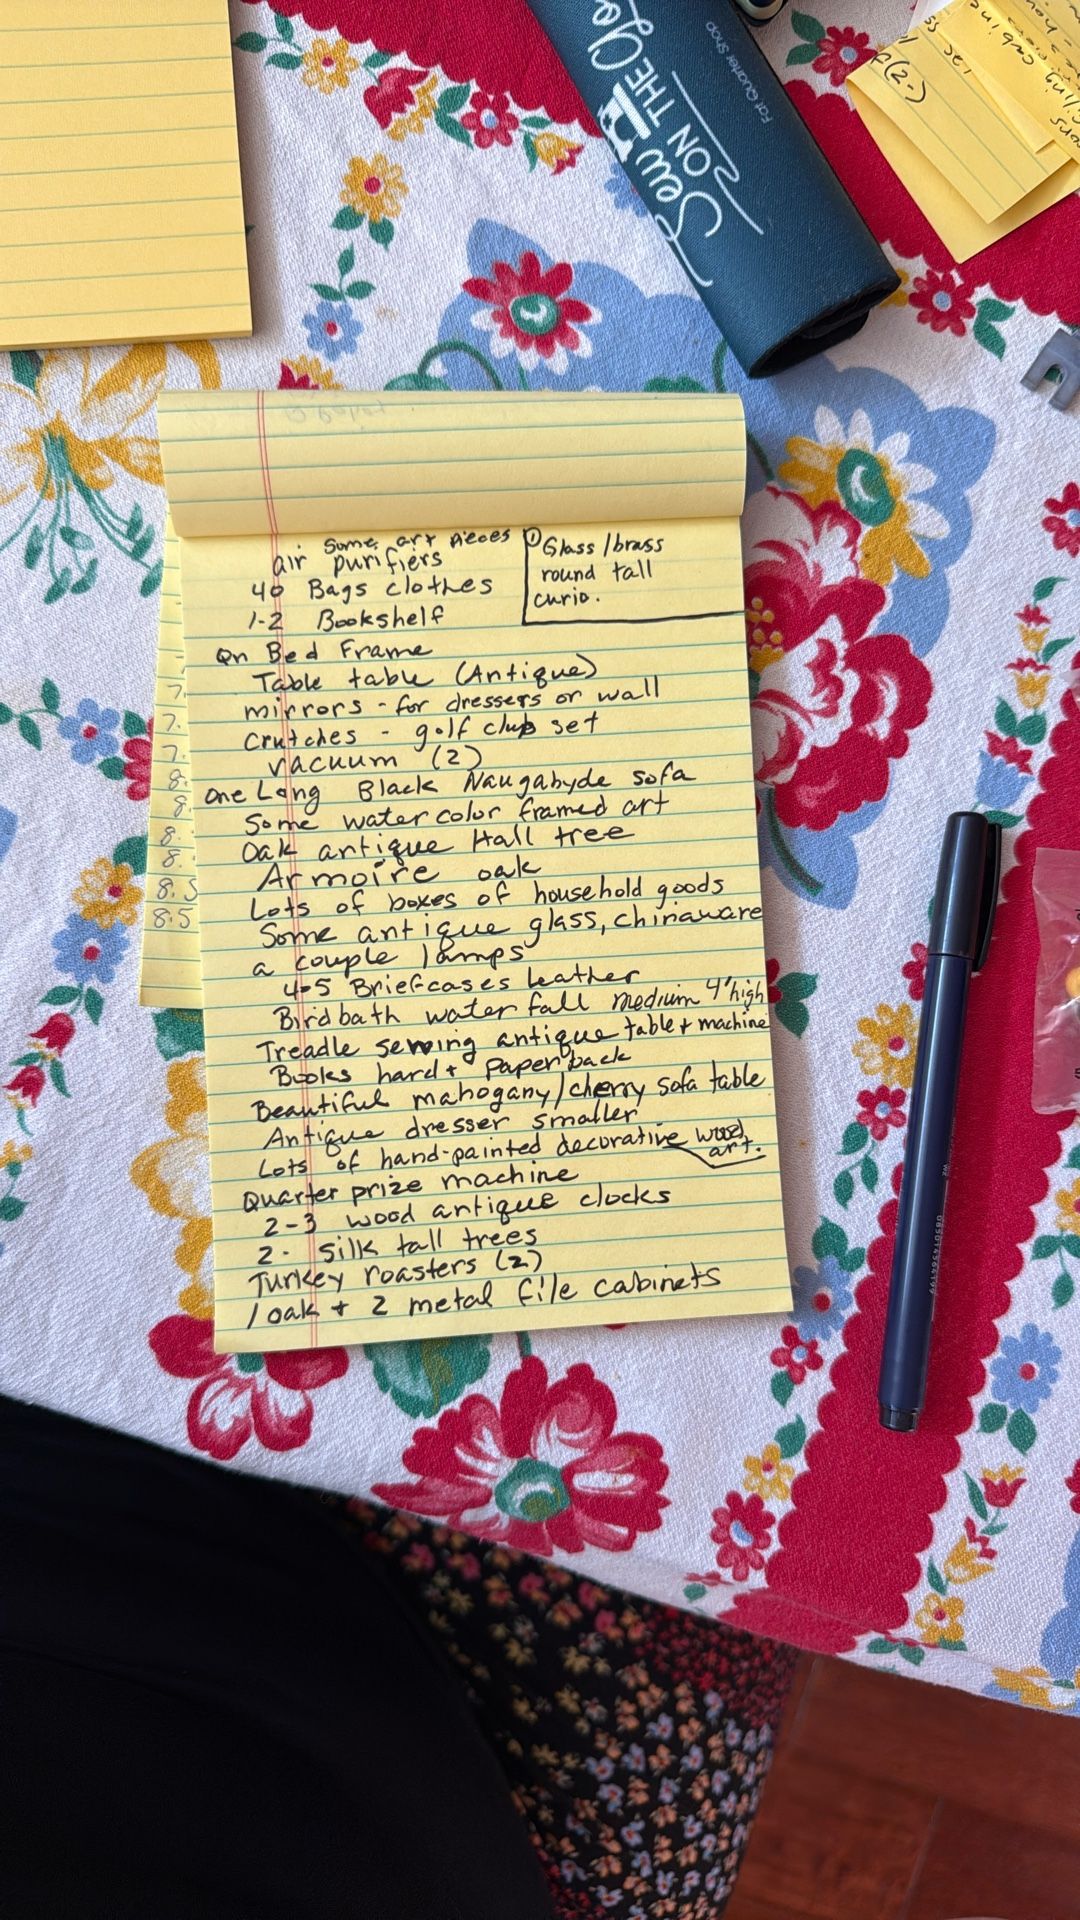 Sew
ON THE Go
Fat Quarter Shop
(2-)
Some art pieces
air purifiers
40 Bags clothes
1-2 Bookshelf
① Glass/brass
round tall
curio.
Qn Bed Frame
Table table (Antique)
mirrors - for dressers or wall
Crutches - golf club set
vacuum (2)
One Long Black Naugahyde sofa
Some water color framed art
Oak antique Hall tree
Armoire oak
Lots of boxes of household goods
Some antique glass, chinaware
a couple lamps
4-5 Briefcases leather
Birdbath water fall medium 4' high
Treadle sewing antique table + machine
Books hard + paperback
Beautiful mahogany/cherry sofa table
Antique dresser smaller
Lots of hand-painted decorative wood
art.
Quarter prize machine
2-3 wood antique clocks
2- silk tall trees
Turkey roasters (2)
1 oak + 2 metal file cabinets
7.
7.
7.
8.
8.
8.
8.
8.5
8.5